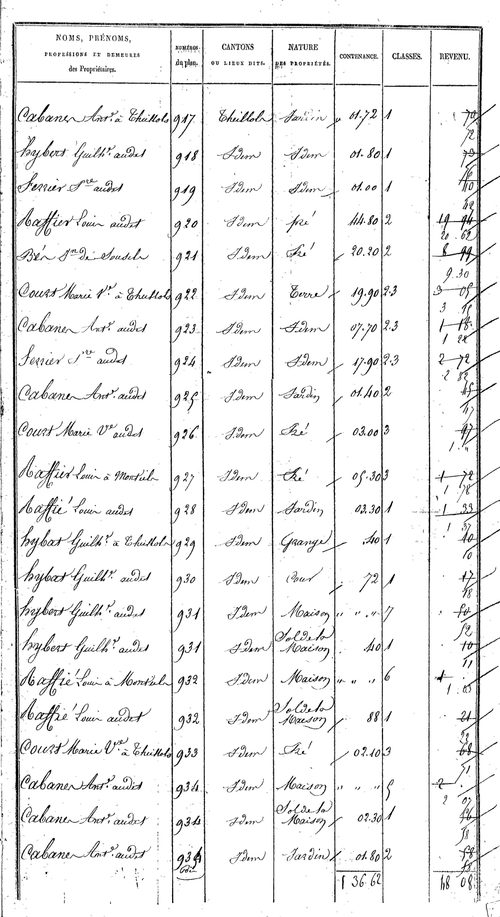 NOMS, PRÉNOMS, PROFESSIONS ET DEMEURES des Propriétaires. NUMÉROS du plan. CANTONS OU LIEUX DITS. NATURE DES PROPRIÉTÉS. CONTENANCE. CLASSES. REVENU.
Cabanes Ant.^e à Theillols 917 Theillols Jardin 01.72 1 70 72
hybert Guilh.^e audet 918 Idem Idem 01.80 1 73 76
Ferrier J.^re audet 919 Idem Idem 01.00 1 40 42
Raffier Louis audet 920 Idem pré 44.80 2 19 94 20.62
Bén J.^n de Sousels 921 Idem Pré 20.20 2 8 99 9.30
Court Marie V.^e à Theillols 922 Idem Terre 19.90 2.3 3 05 3 15
Cabanes Ant.^e audet 923 Idem Idem 07.70 2.3 1 18 1 22
Ferrier J.^re audet 924 Idem Idem 17.90 2.3 2 72 2 82
Cabanes Ant.^e audet 925 Idem Jardin 01.40 2 45 47
Court Marie V.^e audet 926 Idem Pré 03.00 3 97 1 "
Raffier Louis à Montels 927 Idem Pré 05.30 3 1 72 1 78
Raffié Louis audet 928 Idem Jardin 03.30 1 1 33 1 37
hybert Guilh.^e à Theillols 929 Idem Grange .40 1 10 10
hybert Guilh.^e audet 930 Idem Cour 72 1 17 18
hybert Guilh.^e audet 931 Idem Maison " " " 7 50 52
hybert Guilh.^e audet 931 Idem Sol de la Maison .40 1 10 11
Raffié Louis à Montels 932 Idem Maison " " " 6 1 . 1 . 03
Raffié Louis audet 932 Idem Sol de la Maison 88 1 21 22
Court Marie V.^ve à Theillols 933 Idem Pré 02.10 3 68 71
Cabanes Ant.^e audet 934 Idem Maison " " " 5 2 . 2 07
Cabanes Ant.^e audet 934 Idem Sol de la Maison 02.30 1 56 58
Cabanes Ant.^e audet 934 bis Idem Jardin 01.80 2 58
1 36.62 48 08